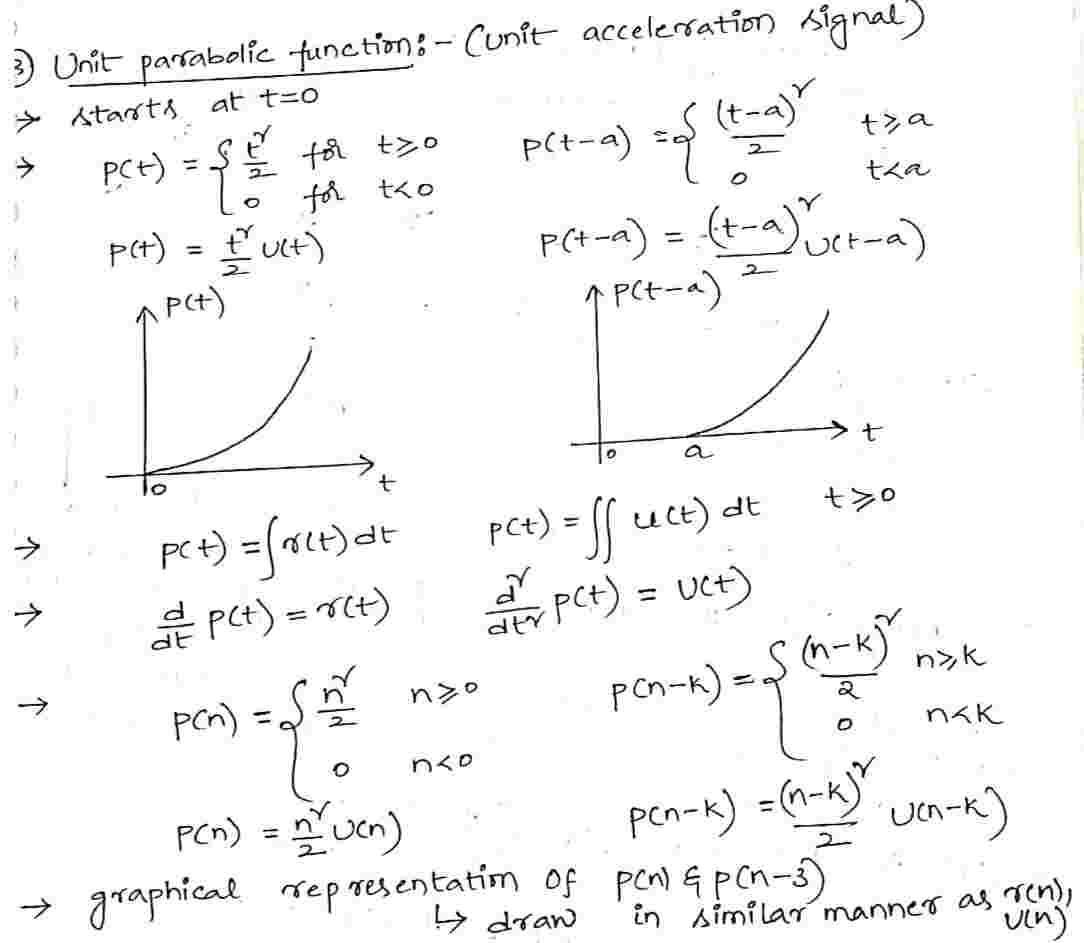 3) Unit parabolic function:- (unit acceleration signal)
→ starts at t=0
→ p(t) = { t²/2 for t≥0    p(t-a) = { (t-a)²/2 t≥a
0 for t<0    0 t<a
p(t) = t²/2 u(t)    p(t-a) = (t-a)²/2 u(t-a)
p(t)    p(t-a)
0 t    0 a t
→ p(t) = ∫r(t) dt    p(t) = ∫∫ u(t) dt    t≥0
→ d/dt p(t) = r(t)    d²/dt² p(t) = u(t)
→ p(n) = { n²/2 n≥0    p(n-k) = { (n-k)²/2 n≥k
0 n<0    0 n<k
p(n) = n²/2 u(n)    p(n-k) = (n-k)²/2 u(n-k)
→ graphical representation of p(n) & p(n-3)
↳ draw in similar manner as r(n), u(n)